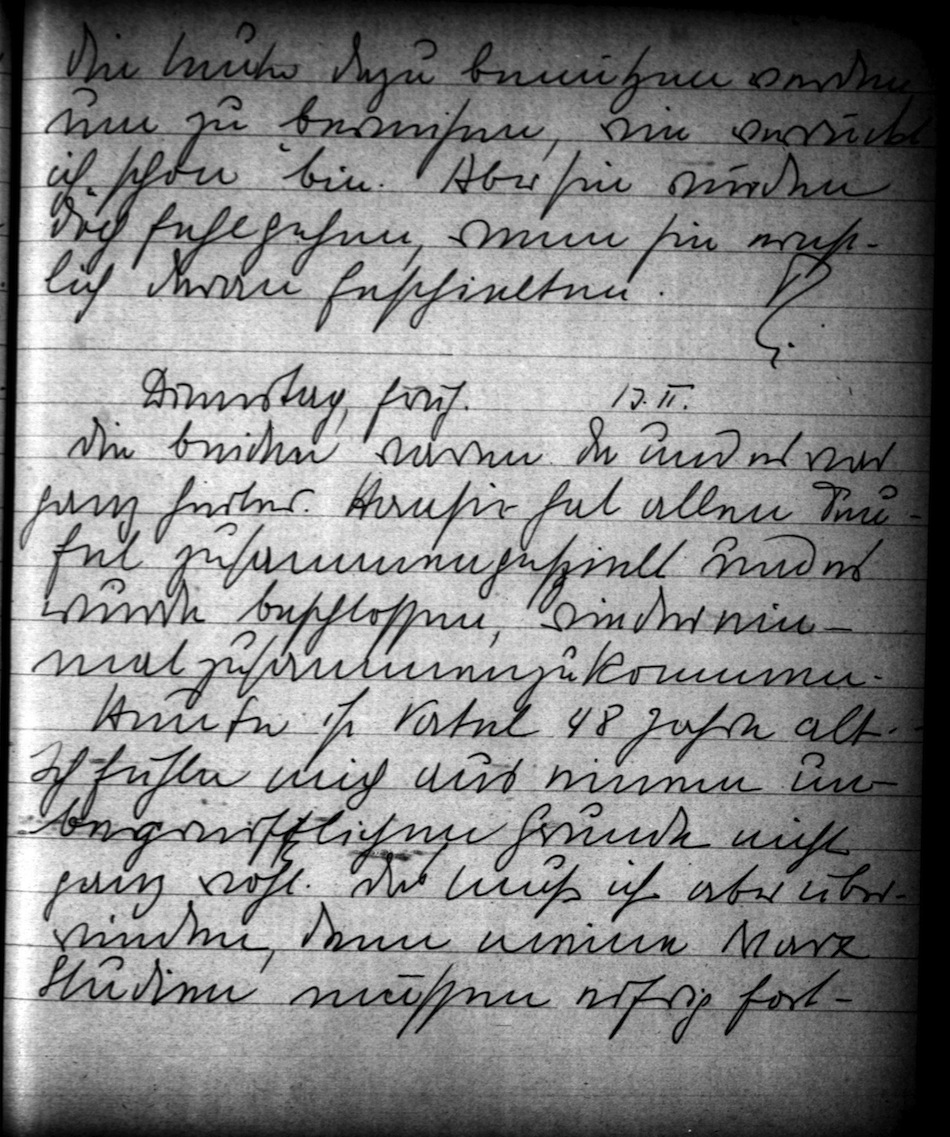 die Leute dazu benützen werden
um zu beweisen, wie verrückt
ich schon bin. Aber sie würden
doch fehlgehen, wenn sie ernst-
lich daran festhielten.
Dienstag, früh. 13. II.
Die beiden waren da und es war
ganz heiter. Hansi hat allen Teu-
fel zusammengespielt und es
wurde beschlossen, wieder ein-
mal zusammenzukommen.
Heute ist Vaterl 48 Jahre alt.
Ich fühle mich aus einem un-
begreiflichen Grunde nicht
ganz wohl. Das muß ich aber über-
winden, denn meine Marx
Studien müssen eifrig fort-